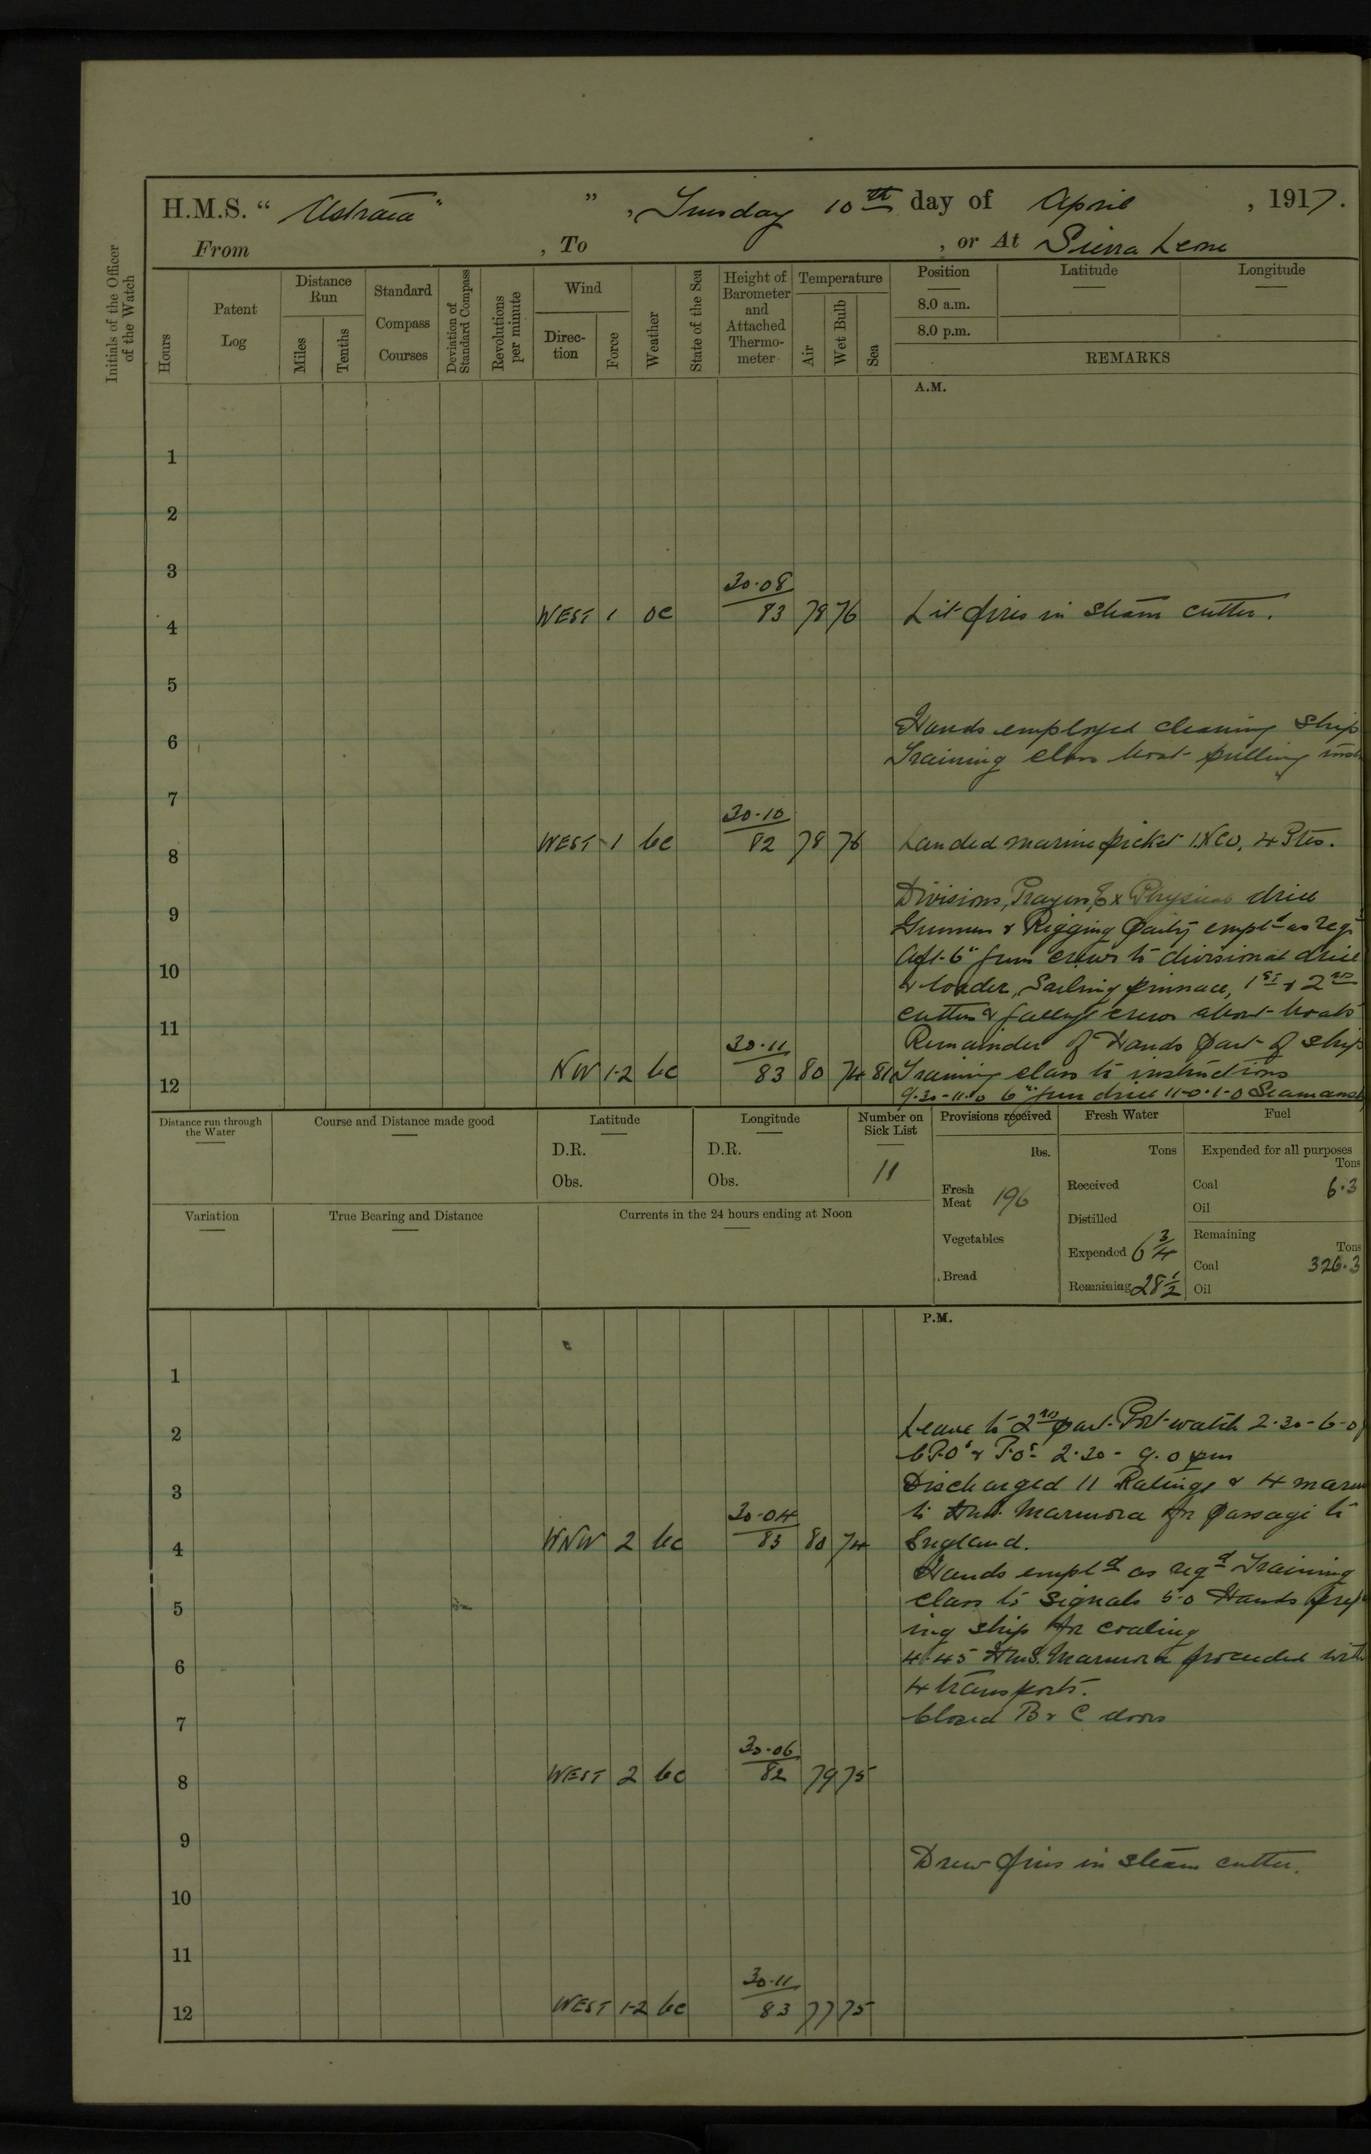 H.M.S. "Astraea" , Tuesday 10th day of April , 1917.
From , To , or At Sierra Leone
Initials of the Officer of the Watch
Hours
Patent Log
Distance Run
Miles
Tenths
Standard Compass Courses
Deviation of Standard Compass
Revolutions per minute
Wind
Direc-tion
Force
Weather
State of the Sea
Height of Barometer and Attached Thermo-meter
Temperature
Air
Wet Bulb
Sea
Position Latitude Longitude
8.0 a.m.
8.0 p.m.
REMARKS
A.M.
1
2
3
30.08
4 WEST 1 oc 83 78 76 Lit fires in steam cutter.
5
Hands employed cleaning ship
6
Training class boat pulling
7
30.10
8 WEST 1 bc 82 78 76 Landed marine picket 1 NCO, 4 Ptes.
Divisions, Prayers, Ex Physical drill
9
Gunners & Rigging party empld as reqd
Aft 6" gun crews to divisional drill
10
& loader, Sailing pinnace, 1st & 2nd
cutter & galleys crews about boats
11
Remainder of Hands part of ship
30.11
12 NW 1-2 bc 83 80 74 81 Training class to instructions
9.30-11.0 6" gun drill 11-0.1-0
Distance run through the Water
Course and Distance made good
Latitude
D.R.
Obs.
Longitude
D.R.
Obs.
Number on Sick List
11
Provisions received
lbs.
Fresh Meat 196
Vegetables
Bread
Fresh Water
Tons
Received
Distilled
Expended 6 3/4
Remaining 28 1/2
Fuel
Expended for all purposes
Tons
Coal 6.3
Oil
Remaining
Tons
Coal 326.3
Oil
Variation
True Bearing and Distance
Currents in the 24 hours ending at Noon
P.M.
1
Leave to 2nd part Port watch 2.30-6-0
2
CPOs & POs 2.30 - 9.0 pm
3
Discharged 11 Ratings & 4
30.04
to HMS. Marmora for passage to
4 WNW 2 bc 83 80 74 England.
Hands empld as reqd Training
5
class to signals 5.0 Hands
ing ship for coaling
6
4.45 HMS. Marmora proceeded with
4 transports.
7
Closed B & C doors
30.06
8 WEST 2 bc 82 79 75
9
Drew fires in steam cutter.
10
11
30.11
12 WEST 1-2 bc 83 77 75